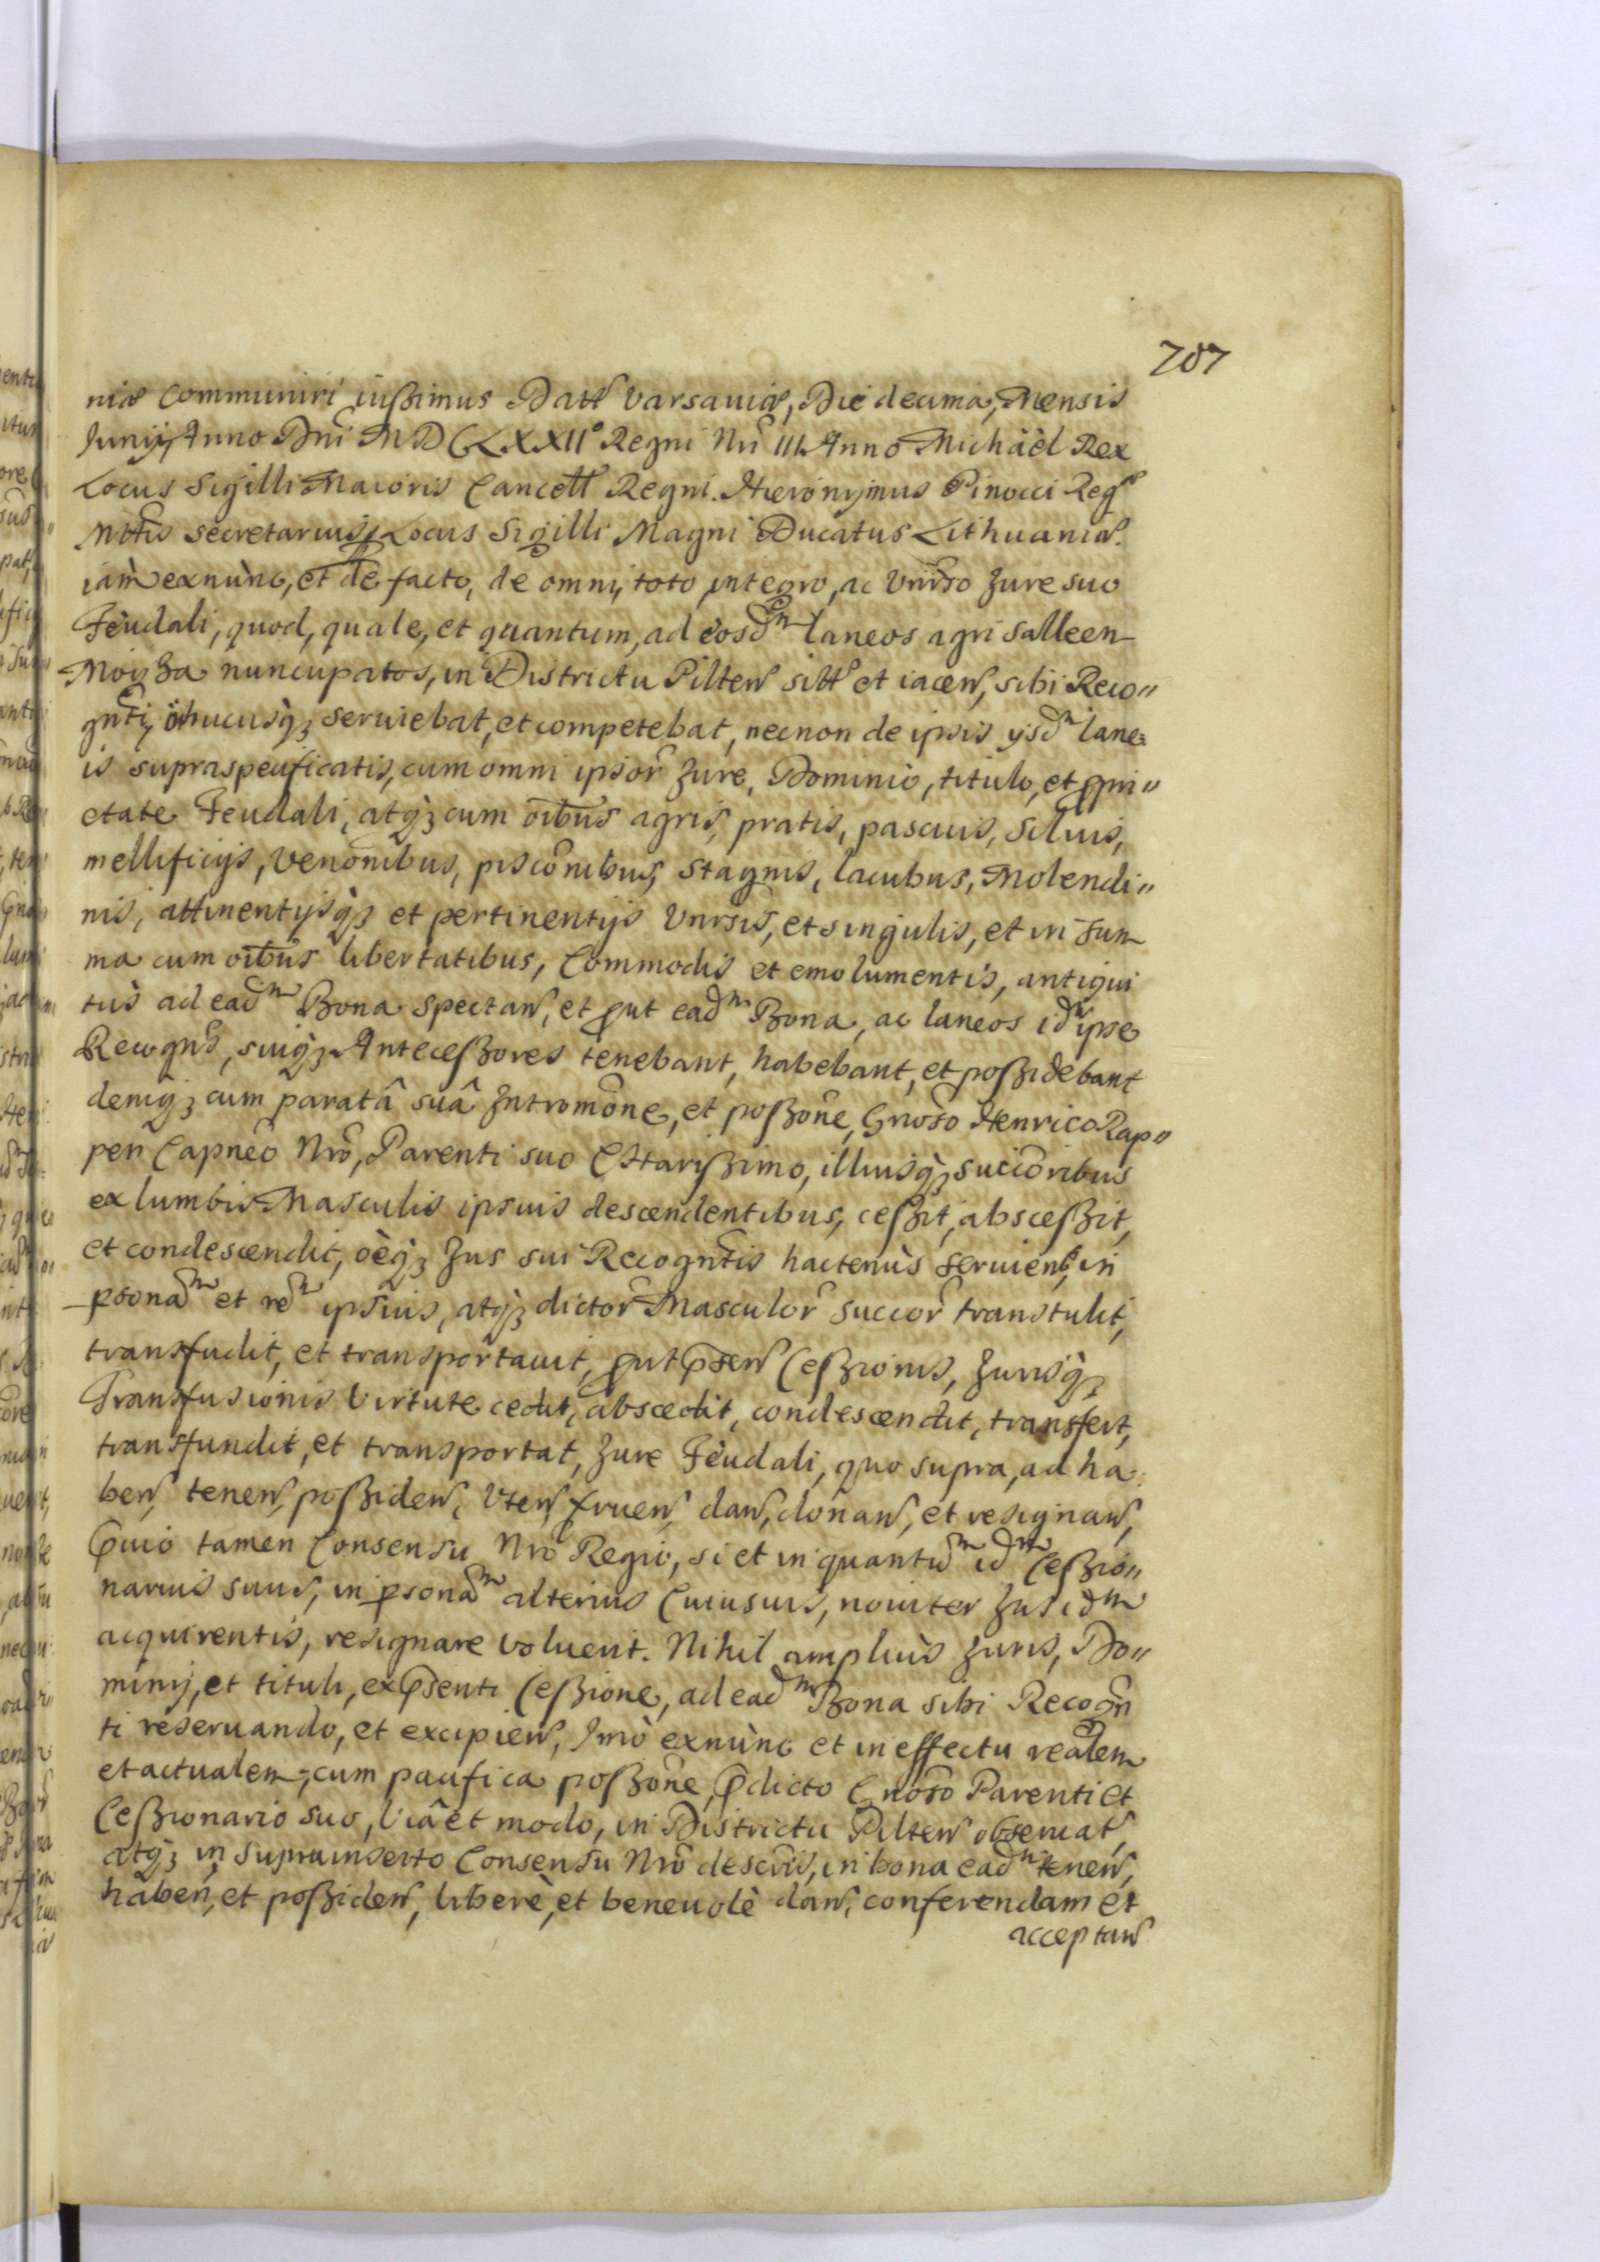 707
niæ communiri iussimus Datt Varsauiæ, Die decima, Mensis
Junij, Anno Dni MDCLXXII° Regni Nri III. Anno Michäel Rex
Locus Sigilli Maioris Cancell Regni. Hieronymus Pinocci Reg
Mttis Secretarius, Locus Sigilli Magni Ducatus Lithuaniæ.
iàm exnùnc, et de facto, de omni, toto integro, ac Vnirso Jure suo
Feudali, quod, quale, et quantum, ad eosdm laneos agri Salleen
Moyza nuncupatos, in Districtu Pilten sitt et iacen, sibi Reco"
gnti, hucusq3 seruiebat, et competebat, necnon de ipsis ysdm lane=
is supraspecificatis, cum omni ipsor Jure, Dominio, titulo, et ppri"
etate Feudali, atq3 cum oibus agris, pratis, pascuis, Siluis,
mellificijs, Venonibus, pisconibus, stagnis, lacubus, Molendi"
nis, attinentijsq3 et pertinentijs Vnrsis, et singulis, et in sum
ma cum oibus libertatibus, Commodis et emolumentis, antiqui
tùs ad eadm Bona spectan, et put eadm Bona, ac laneos idm ipse
Recogns, suiq3 Antecessores tenebant, habebant, et possidebant
deniq3 cum paratâ suâ Intromone, et possone, Gnoso Henrico Rap"
pen Capneo Nro, Parenti suo Charissimo, illiusq3 succoribus
ex lumbis Masculis ipsius descendentibus, cessit, abscessit,
et condescendit, oèq3 Jus sui Recogntis hactenùs seruiens, in
psonam et rem ipsius, atq3 dictor Masculor succor transtulit,
transfudit, et transportauit, put psen Cessionis, Jurisq3
Transfusionis Virtute cedit, abscedit, condescendit, transfert,
transfundit, et transportat, Jure Feudali, quo supra, ad ha
ben, tenen, possiden, Vten, fruen, dan, donan, et resignan,
pvio tamen Consensu Nro Regio, si et in quantum idm Cessio"
narius suus, in psonam alterius Cuiusuis, nouiter Jus idm
acquirentis, resignare voluerit. Nihil ampliùs Juris, Do"
minij, et tituli, ex psenti Cessione, ad eadm Bona sibi Recogn
ti reseruando, et excipien, Imò exnùnc et in effectu realem
et actualem, cum pacifica possone, pdicto Gnoso Parenti et
Cessionario suo, Viâ et modo, in Districtu Pilten obseruat,
atq3 in suprainserto Consensu Nro descris, in bona eadm tenen,
haben, et possiden, liberè, et beneuolè dan, conferendam et
acceptan